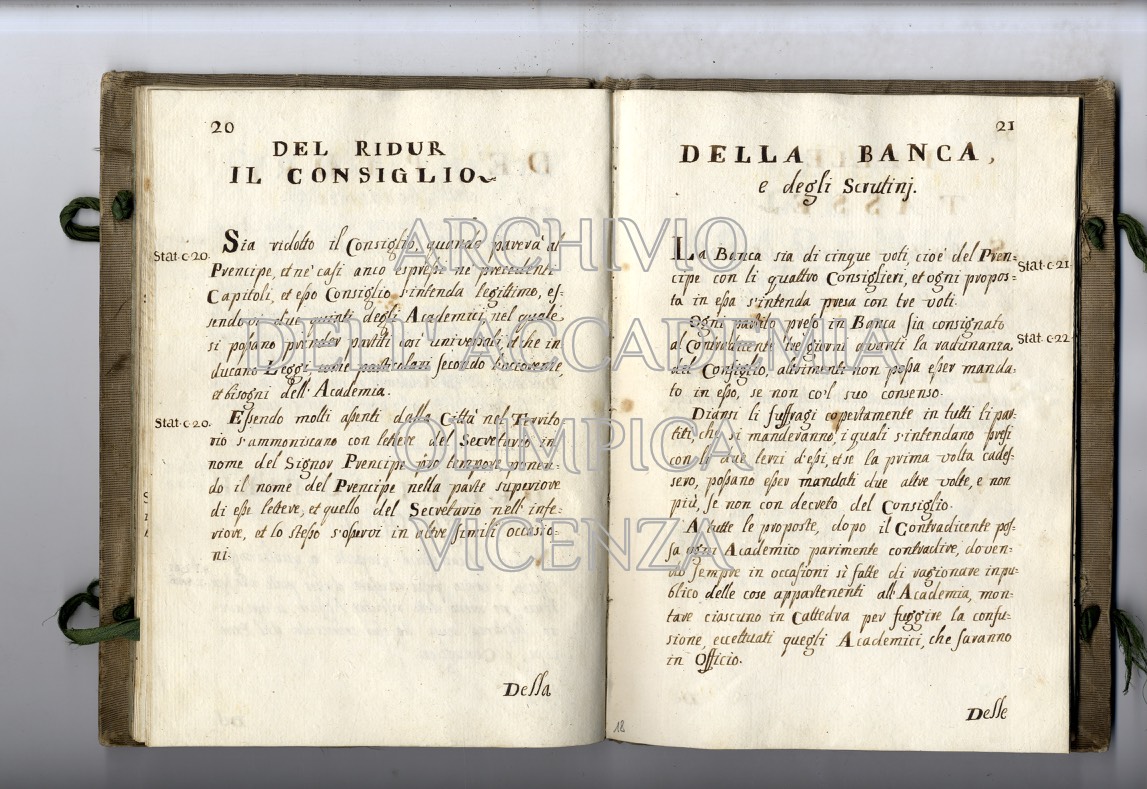 20
DEL RIDUR
IL CONSIGLIO
Stat. c. 20.
Sia ridotto il Consiglio, quando parerà al
Prencipe, et ne' casi anco espressi ne' precedenti
Capitoli, et esso Consiglio s'intenda legittimo, es-
sendovi due quinti degli Academici, nel quale
si possano prender partiti così universali, et che in
ducano Leggi, come particolari secondo l'occorrente,
et bisogni dell'Academia.
Stat. c. 20.
Essendo molti assenti dalla Città nel Territo
rio s'ammoniscano con lettere del Secretario in
nome del Signor Prencipe pro tempore, ponen-
do il nome del Prencipe nella parte superiore
di esse lettere, et quello del Secretario nell'infe-
riore, et lo stesso s'osservi in altre simili occasio-
ni.
Della
21
DELLA BANCA,
e degli Scrutinj.
La Banca sia di cinque voti, cioè del Pren-
Stat. c. 21.
cipe con li quattro Consiglieri, et ogni propos-
ta in essa s'intenda presa con tre voti.
Ogni partito preso in Banca sia consignato
Stat. c. 22.
al Contradicente tre giorni avanti la radunanza
del Consiglio, altrimenti non possa esser manda-
to in esso, se non co'l suo consenso.
Diansi li suffragi copertamente in tutti li par-
titi, che si manderanno, i quali s'intendano presi
con li due terzi d'essi, et se la prima volta cades-
sero, possano esser mandati due altre volte, e non
più, se non con decreto del Consiglio.
A tutte le proposte, dopo il Contradicente pos-
sa ogni Academico parimente contradire, doven-
do sempre in occasioni sì fatte di ragionare in pu-
blico delle cose appartenenti all'Academia, mon-
tare ciascuno in Cattedra per fuggire la confu-
sione, eccettuati quegli Academici, che saranno
in Officio.
Delle
18
ARCHIVIO
DELL'ACCADEMIA
OLIMPICA
VICENZA